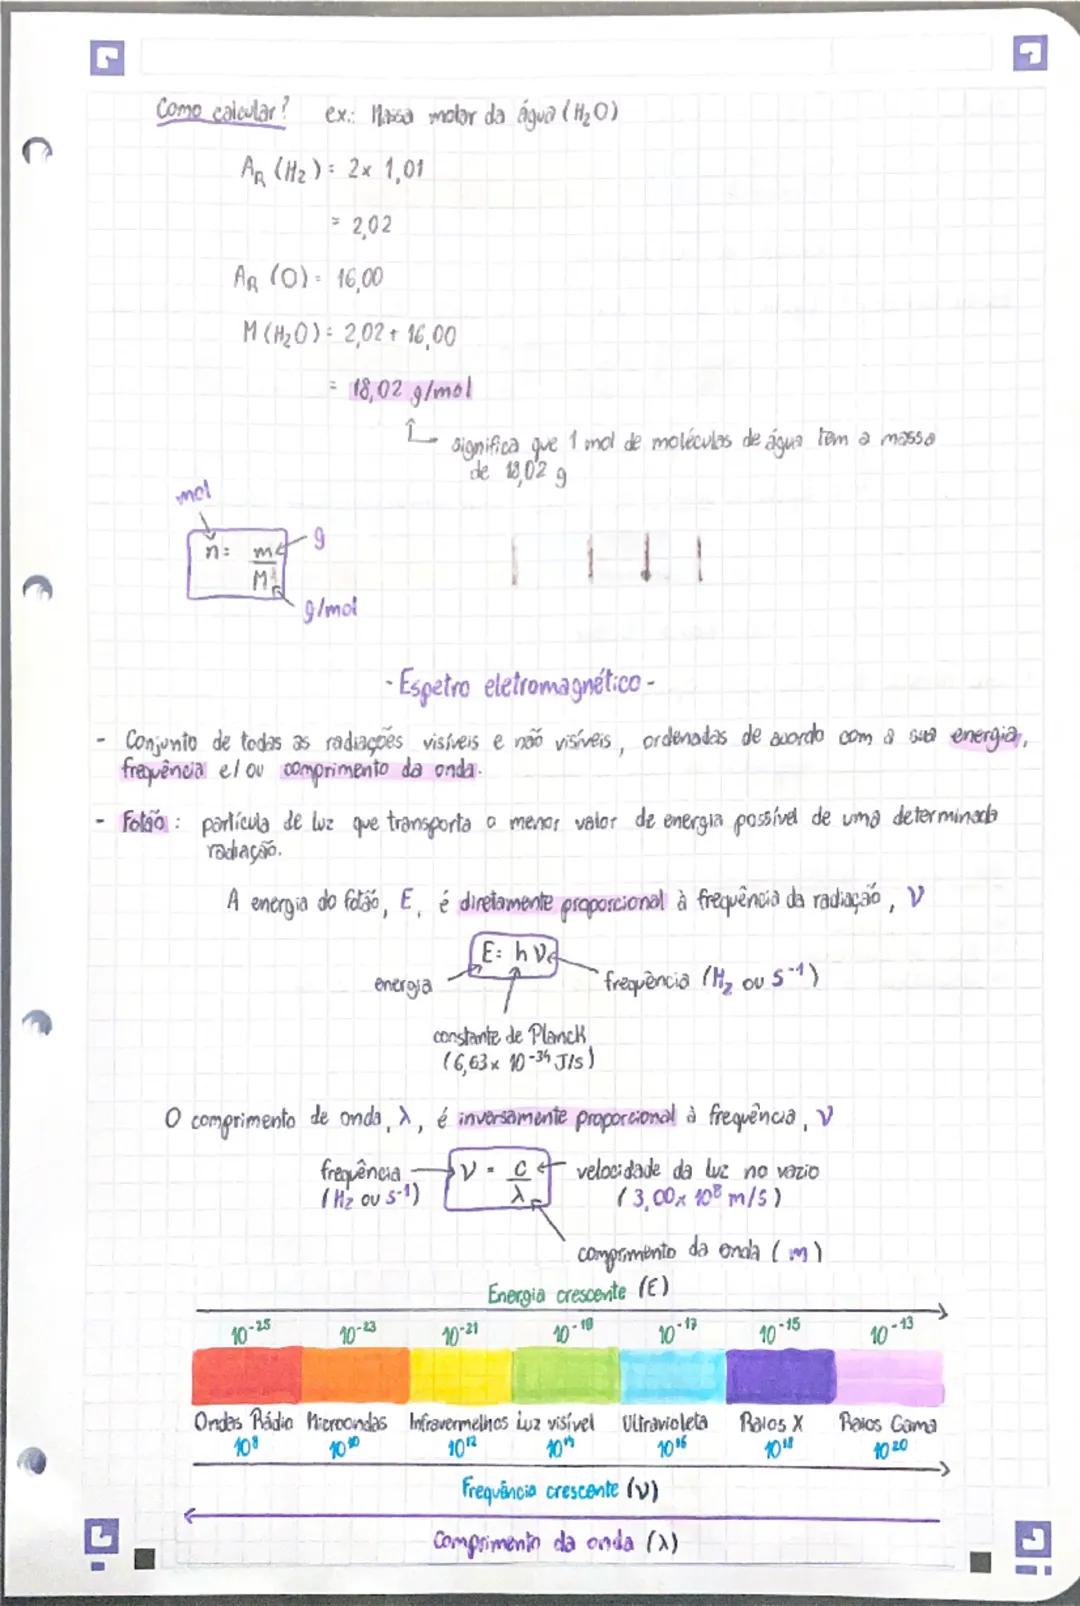 Como calcular? ex.: Massa molar da água (H₂O)
AR (H₂) = 2x 1,01
= 2,02
AR (O) = 16,00
M (H₂O) = 2,02 + 16,00
= 18,02 g/mol
significa que 1 mol de moléculas de água tem a massa
de 18,02 g
mol
n = m/M
g
g/mol
- Espetro eletromagnético -
- Conjunto de todas as radiações visíveis e não visíveis, ordenadas de acordo com a sua energia,
frequência e/ou comprimento da onda.
- Fotão: partícula de luz que transporta o menor valor de energia possível de uma determinada
radiação.
A energia do fotão, E, é diretamente proporcional à frequência da radiação, ν
E = h ν
energia
frequência (Hz ou s⁻¹)
constante de Planck
(6,63 x 10⁻³⁴ J/s)
O comprimento de onda, λ, é inversamente proporcional à frequência, ν
frequência
(Hz ou s⁻¹)
ν = c/λ
velocidade da luz no vazio
(3,00 x 10⁸ m/s)
comprimento da onda (m)
Energia crescente (E)
10⁻²⁵ 10⁻²³ 10⁻²¹ 10⁻¹⁹ 10⁻¹⁷ 10⁻¹⁵ 10⁻¹³
Ondas Rádio Microondas Infravermelhos Luz visível Ultravioleta Raios X Raios Gama
10⁸ 10¹⁰ 10¹² 10¹⁴ 10¹⁶ 10¹⁸ 10²⁰
Frequência crescente (ν)
Comprimento da onda (λ)